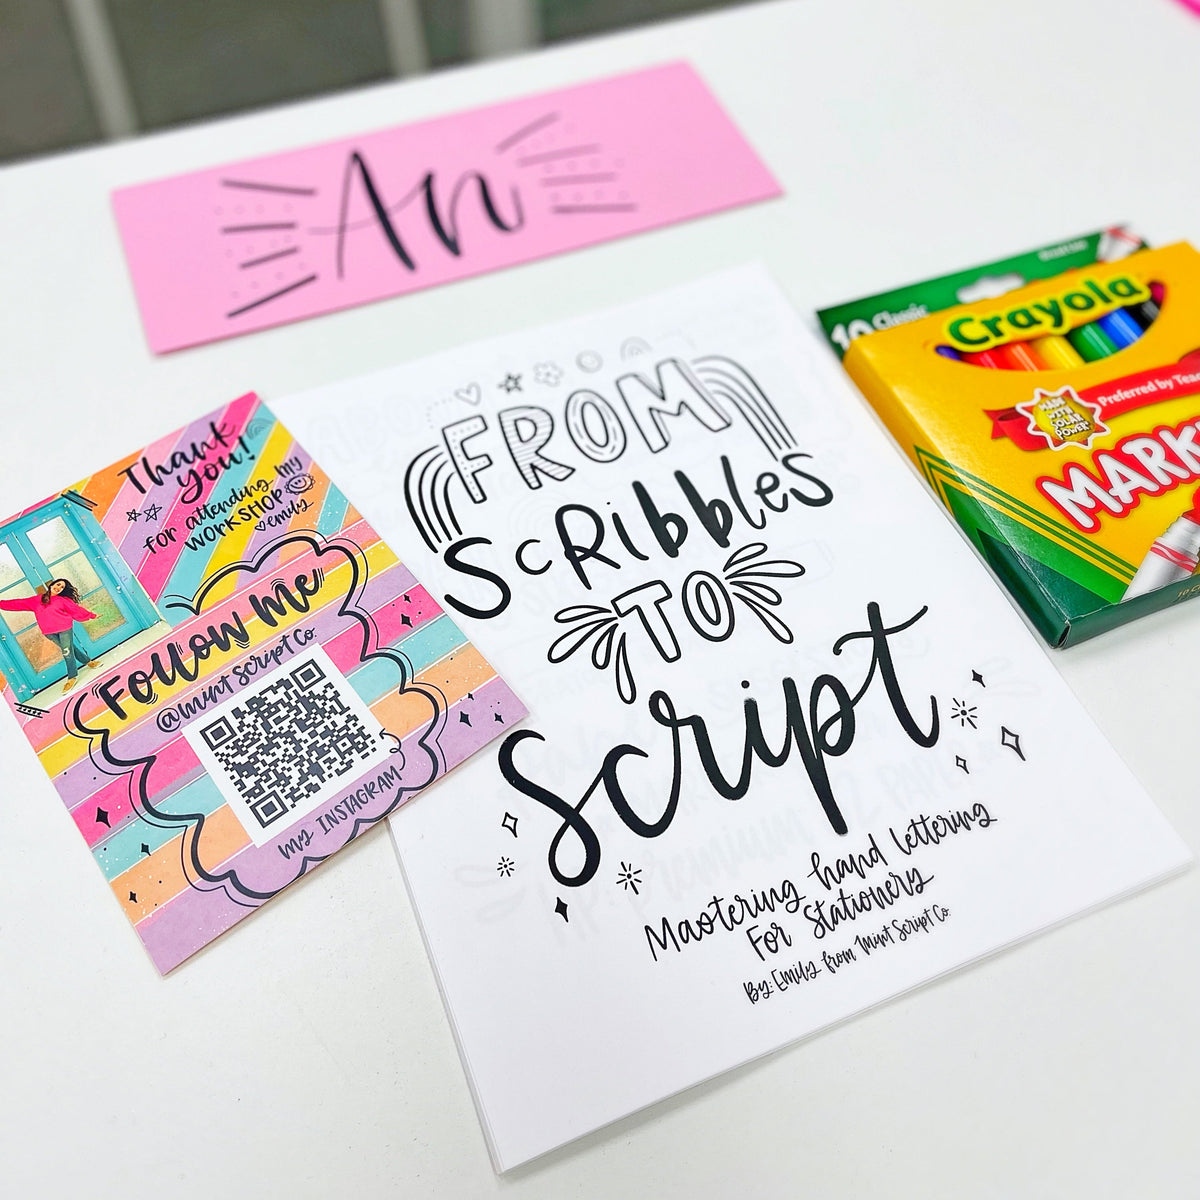 An
Thank
you!
for attending my
WORKSHOP
emily
Follow me
@mint script Co.
my INSTAGRAM
FROM
ScRibbles
TO
Script
Mastering hand lettering
For Stationery
By: Emily from Mint Script Co.
10 Classic
Crayola
Preferred by Tea
MADE
WITH
SOLAR
POWER*
MARK